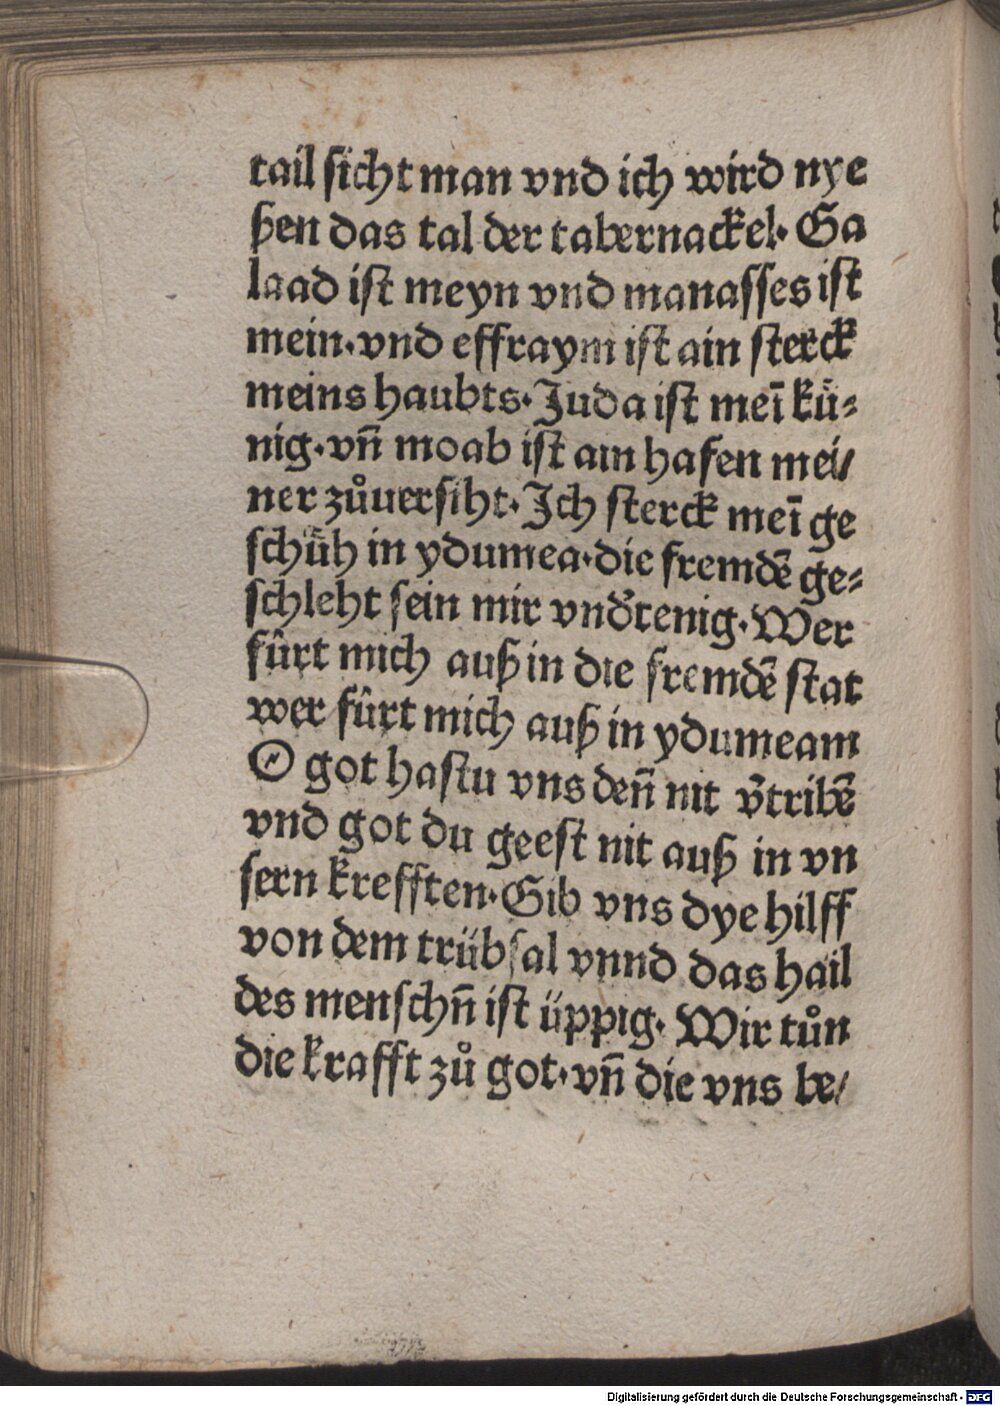 tail sicht man vnd ich wird nye
ßen das tal der tabernackel· Ga
laad ist meyn vnd manasses ist
mein·vnd effraym ist ain sterck
meins haubts·Juda ist meī kü⸗
nig·vn̄ moab ist ain hafen mei/
ner zůuersiht·Ich sterck meī ge
schüh in ydumea·die fremdē ge⸗
schleht sein mir vnd̓tenig·Wer
fürt mich auß in die fremdē stat
wer fürt mich auß in ydumeam
O got hastu vns den̄ nit v̓tribē
vnd got du geest nit auß in vn
sern krefften·Gib vns dye hilff
von dem trübsal vnnd das hail
des menschn̄ ist üppig· Wir tůn
die krafft zů got·vn̄ die vns be/
Digitalisierung gefördert durch die Deutsche Forschungsgemeinschaft - DFG